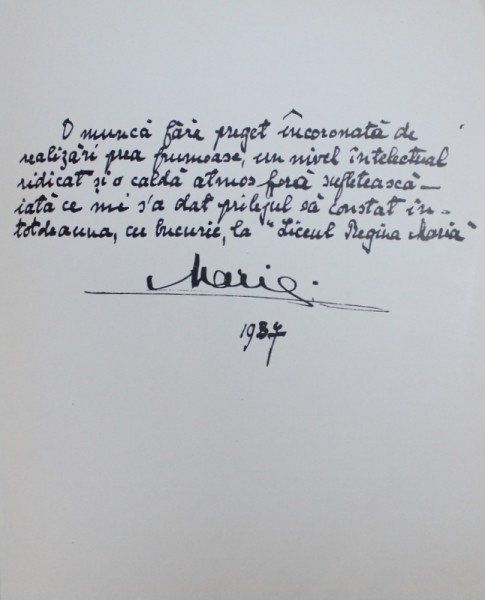 O muncă făre preget încoronată de
realizări prea frumoase, un nivel întelectual
ridicat și o caldă atmosferă sufletească –
iată ce mi s'a dat prilejul să constat în-
totdeauna, cu bucurie, la "Liceul Regina Maria"
Maria.
1937